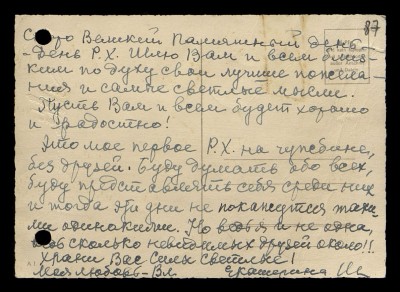 87
Скоро Великий Памятный день
-День Р.Х. Шлю Вам и всем близ-
ким по духу свои лучшие пожела-
ния и самые светлые мысли.
Пусть Вам и всем будет хорошо
и радостно!
Это мое первое Р.Х. на чужбине,
без друзей. Буду думать обо всех,
буду представлять себя среди них
и тогда эти дни не покажутся таки-
ми одинокими. Но ведь я не одна,
сколько невидимых друзей около!!
Храни Вас Силы Светлые!
Моя любовь - Вл.
Екатерина